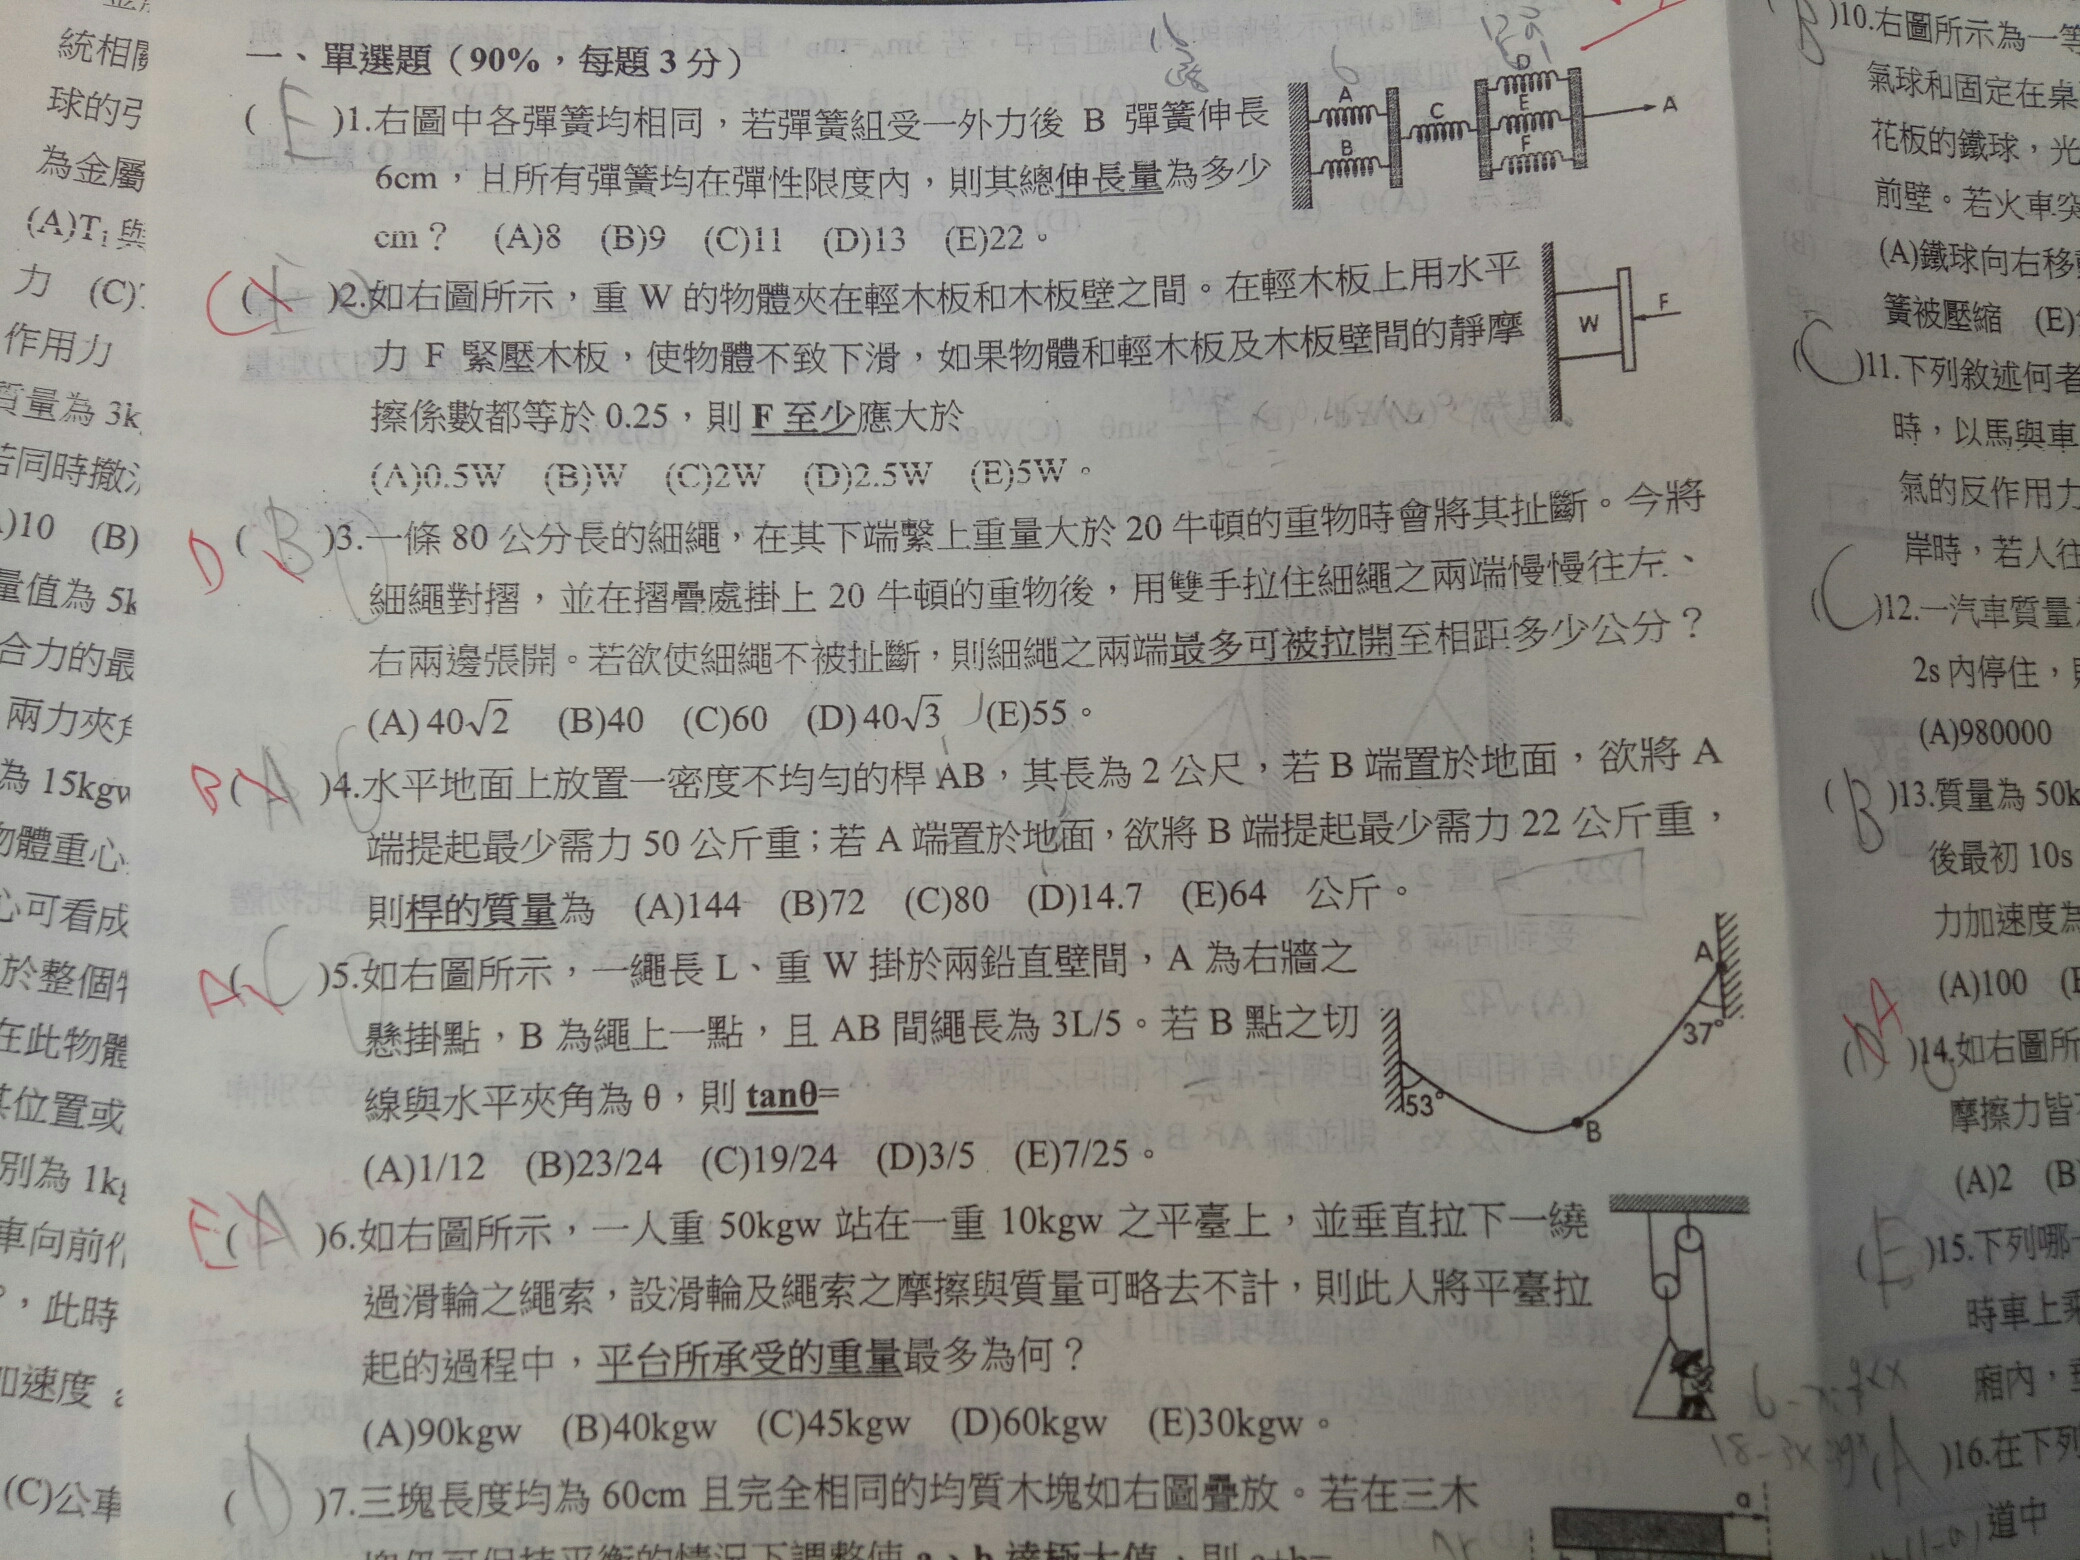 一、單選題（90%，每題 3 分）
( E )1.右圖中各彈簧均相同，若彈簧組受一外力後 B 彈簧伸長
6cm，且所有彈簧均在彈性限度內，則其總伸長量為多少
cm？ (A)8 (B)9 (C)11 (D)13 (E)22。
A
B
C
D
E
F
A
6
C ( )2.如右圖所示，重 W 的物體夾在輕木板和木板壁之間。在輕木板上用水平
力 F 緊壓木板，使物體不致下滑，如果物體和輕木板及木板壁間的靜摩
擦係數都等於 0.25，則 F 至少應大於
(A)0.5W (B)W (C)2W (D)2.5W (E)5W。
W
F
D ( B )3.一條 80 公分長的細繩，在其下端繫上重量大於 20 牛頓的重物時會將其扯斷。今將
細繩對摺，並在摺疊處掛上 20 牛頓的重物後，用雙手拉住細繩之兩端慢慢往左、
右兩邊張開。若欲使細繩不被扯斷，則細繩之兩端最多可被拉開至相距多少公分？
(A) 40√2 (B)40 (C)60 (D) 40√3 (E)55。
B ( A )4.水平地面上放置一密度不均勻的桿 AB，其長為 2 公尺，若 B 端置於地面，欲將 A
端提起最少需力 50 公斤重；若 A 端置於地面，欲將 B 端提起最少需力 22 公斤重，
則桿的質量為 (A)144 (B)72 (C)80 (D)14.7 (E)64 公斤。
A ( C )5.如右圖所示，一繩長 L、重 W 掛於兩鉛直壁間，A 為右牆之
懸掛點，B 為繩上一點，且 AB 間繩長為 3L/5。若 B 點之切
線與水平夾角為 θ，則 tanθ=
(A)1/12 (B)23/24 (C)19/24 (D)3/5 (E)7/25。
A
37°
53°
B
E ( A )6.如右圖所示，一人重 50kgw 站在一重 10kgw 之平臺上，並垂直拉下一繞
過滑輪之繩索，設滑輪及繩索之摩擦與質量可略去不計，則此人將平臺拉
起的過程中，平台所承受的重量最多為何？
(A)90kgw (B)40kgw (C)45kgw (D)60kgw (E)30kgw。
( D )7.三塊長度均為 60cm 且完全相同的均質木塊如右圖疊放。若在三木
塊仍可保持平衡的情況下調整使 a、b 達極大值，則 a+b=
a
統相關
球的引
為金屬
(A)T₁與
力 (C)
作用力
質量為 3k
若同時撤
)10 (B)
量值為 5k
合力的最
兩力夾角
為 15kgw
物體重心
心可看成
於整個物
在此物體
其位置或
別為 1kg
車向前作
，此時
加速度 a
(C)公車
( B )10.右圖所示為一等
氣球和固定在桌
花板的鐵球，光
前壁。若火車突
(A)鐵球向右移動
簧被壓縮 (E)
( C )11.下列敘述何者
時，以馬與車
氣的反作用力
岸時，若人往
( C )12.一汽車質量為
2s 內停住，則
(A)980000
( B )13.質量為 50k
後最初 10s
力加速度為
(A)100
A ( D )14.如右圖所
摩擦力皆
(A)2 (B
( E )15.下列哪
時車上乘
廂內，
( A )16.在下列
道中